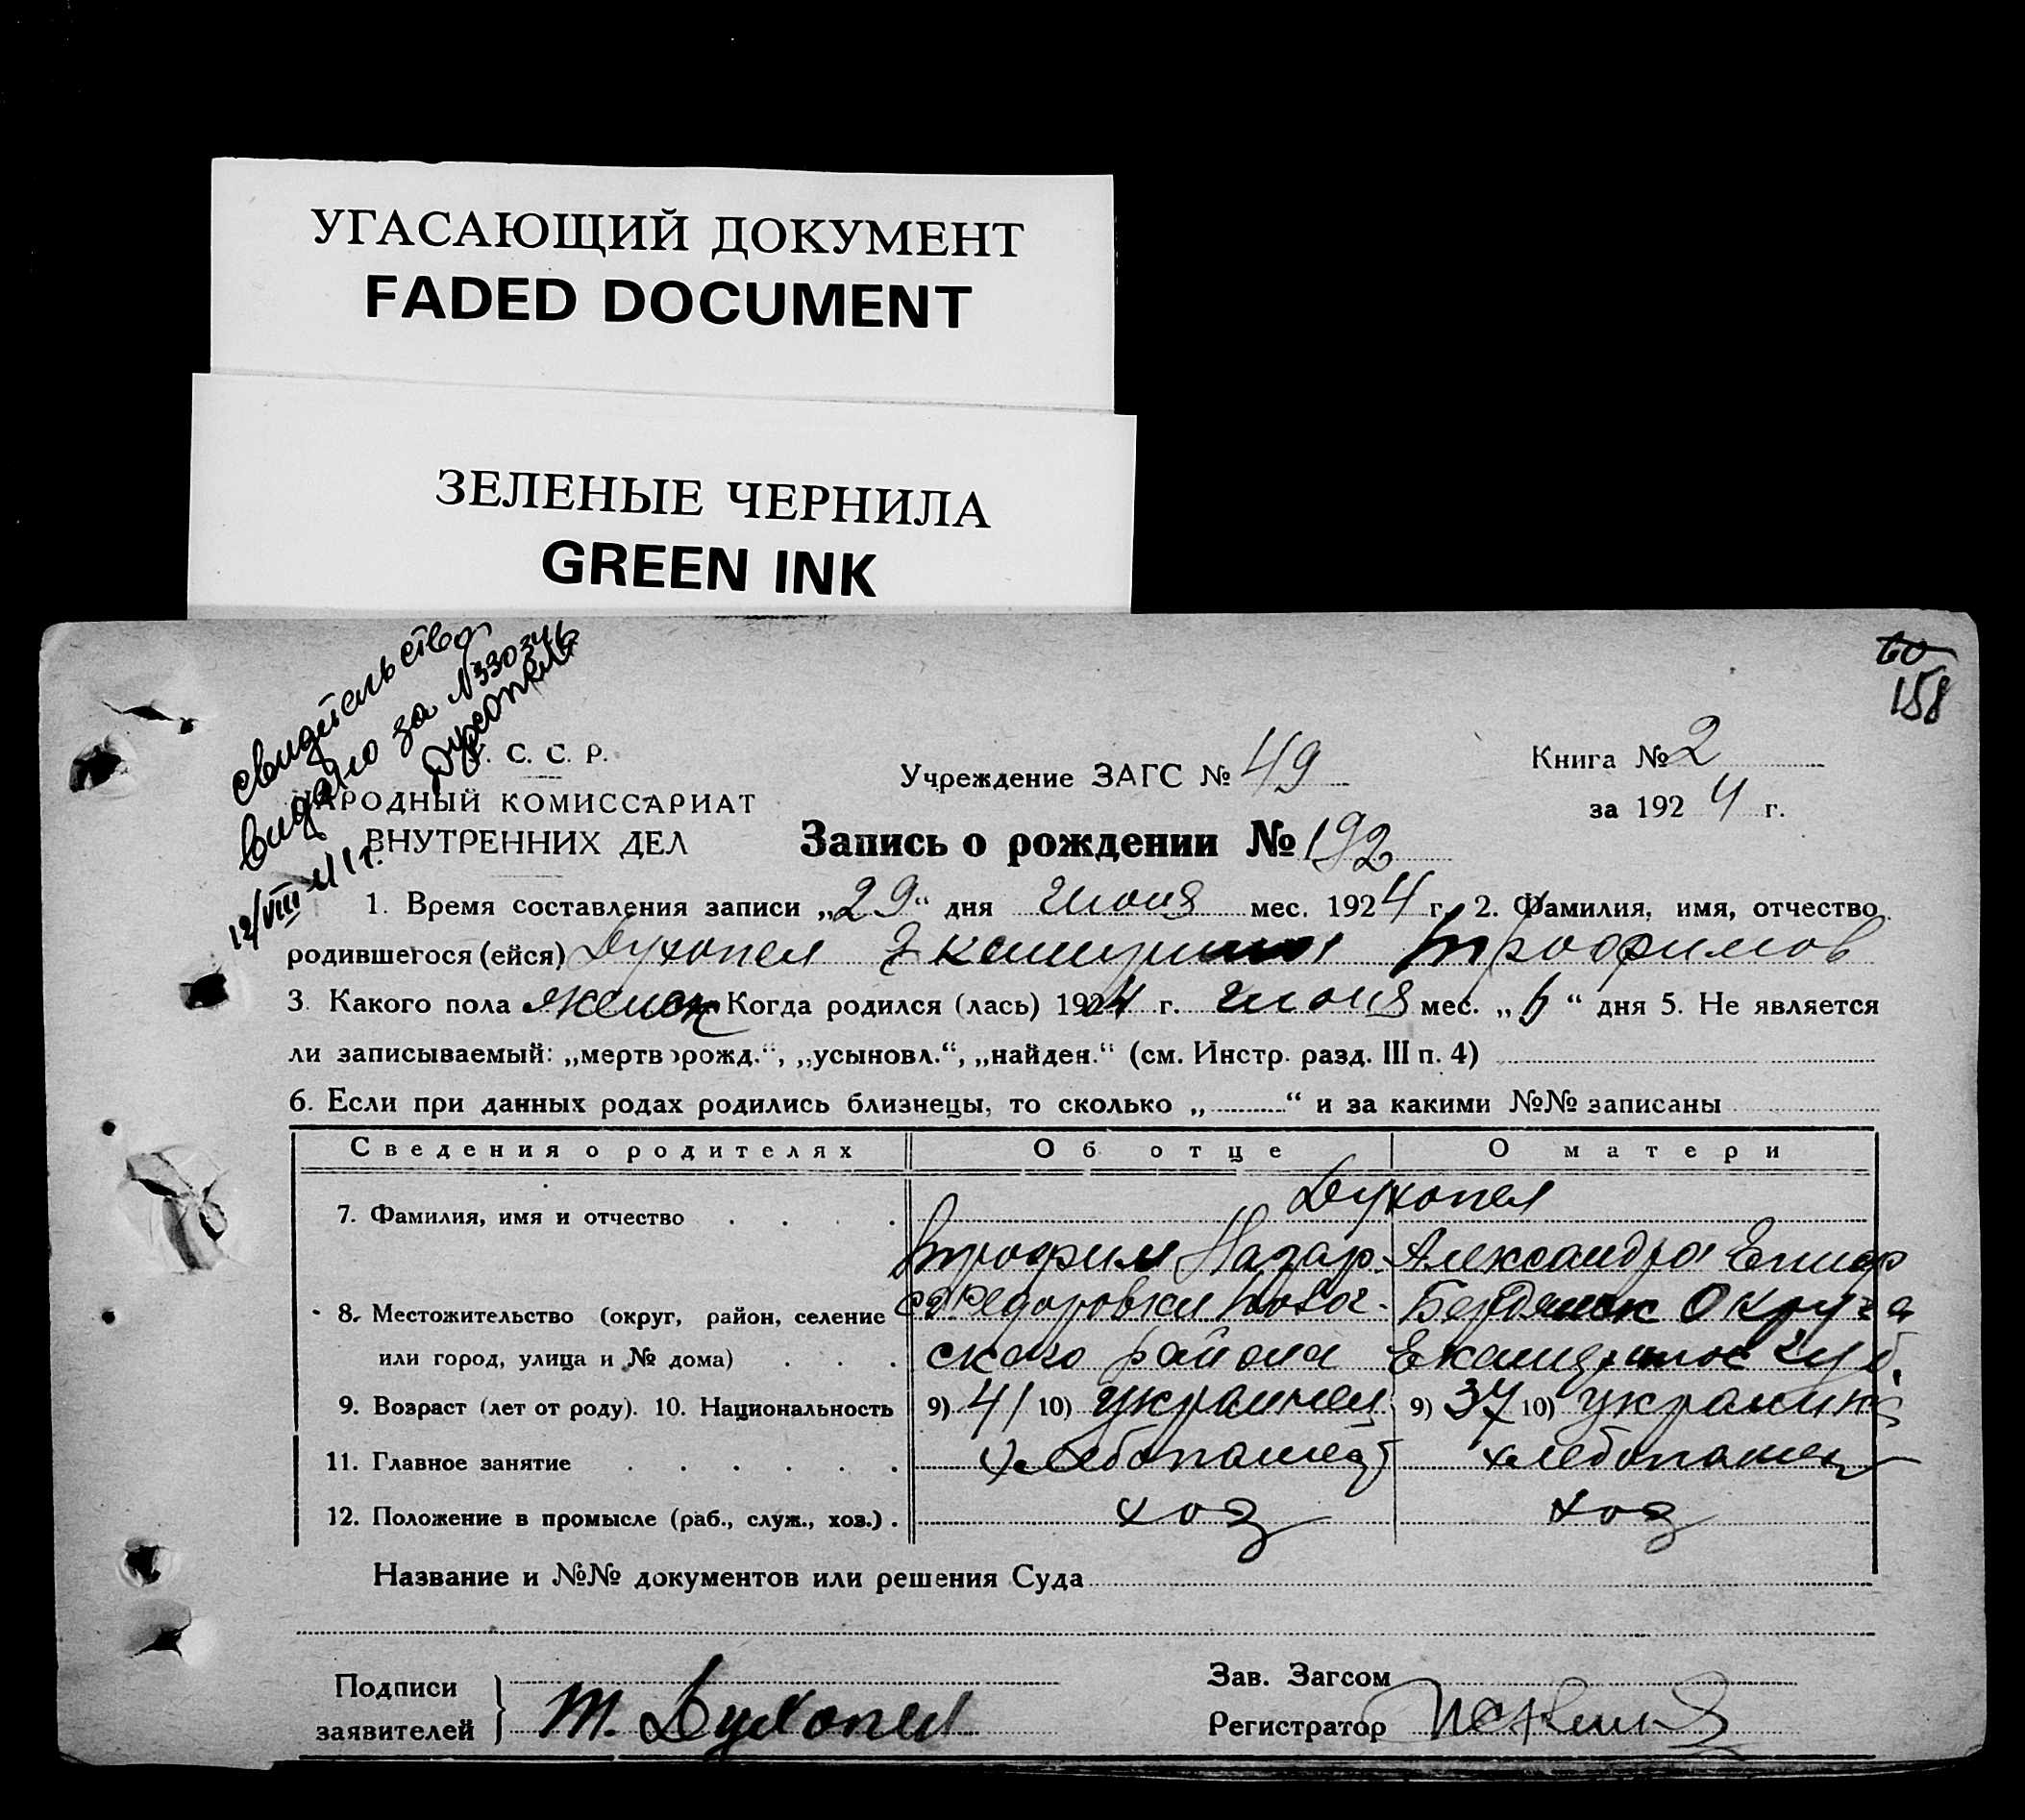 УГАСАЮЩИЙ ДОКУМЕНТ
FADED DOCUMENT
ЗЕЛЕНЫЕ ЧЕРНИЛА
GREEN INK
свидетельство
видано за №330346
12/VIII 41 г.
60
158
С. С. Р.
НАРОДНЫЙ КОМИССАРИАТ
ВНУТРЕННИХ ДЕЛ
Учреждение ЗАГС № 49
Книга № 2
за 1924 г.
Запись о рождении № 192
1. Время составления записи „29“ дня Июня мес. 1924 г. 2. Фамилия, имя, отчество
родившегося (ейся) Духопел Трофимов
3. Какого пола женск Когда родился (лась) 1924 г. Июня мес. „6“ дня 5. Не является
ли записываемый: „мертворожд.“, „усыновл.“, „найден.“ (см. Инстр. разд. III п. 4)
6. Если при данных родах родились близнецы, то сколько „ “ и за какими №№ записаны
Сведения о родителях Об отце О матери
7. Фамилия, имя и отчество Духопел
Трофим Назар. Александра Епифр
8. Местожительство (округ, район, селение Федоровки Бердянск Округа
или город, улица и № дома) ского района Губ.
9. Возраст (лет от роду). 10. Национальность 9) 41 10) украинец 9) 37 10) украинк
11. Главное занятие хлебопашец хлебопашец
12. Положение в промысле (раб., служ., хоз.) хоз хоз
Название и №№ документов или решения Суда
Подписи
заявителей Т. Духопел
Зав. Загсом
Регистратор